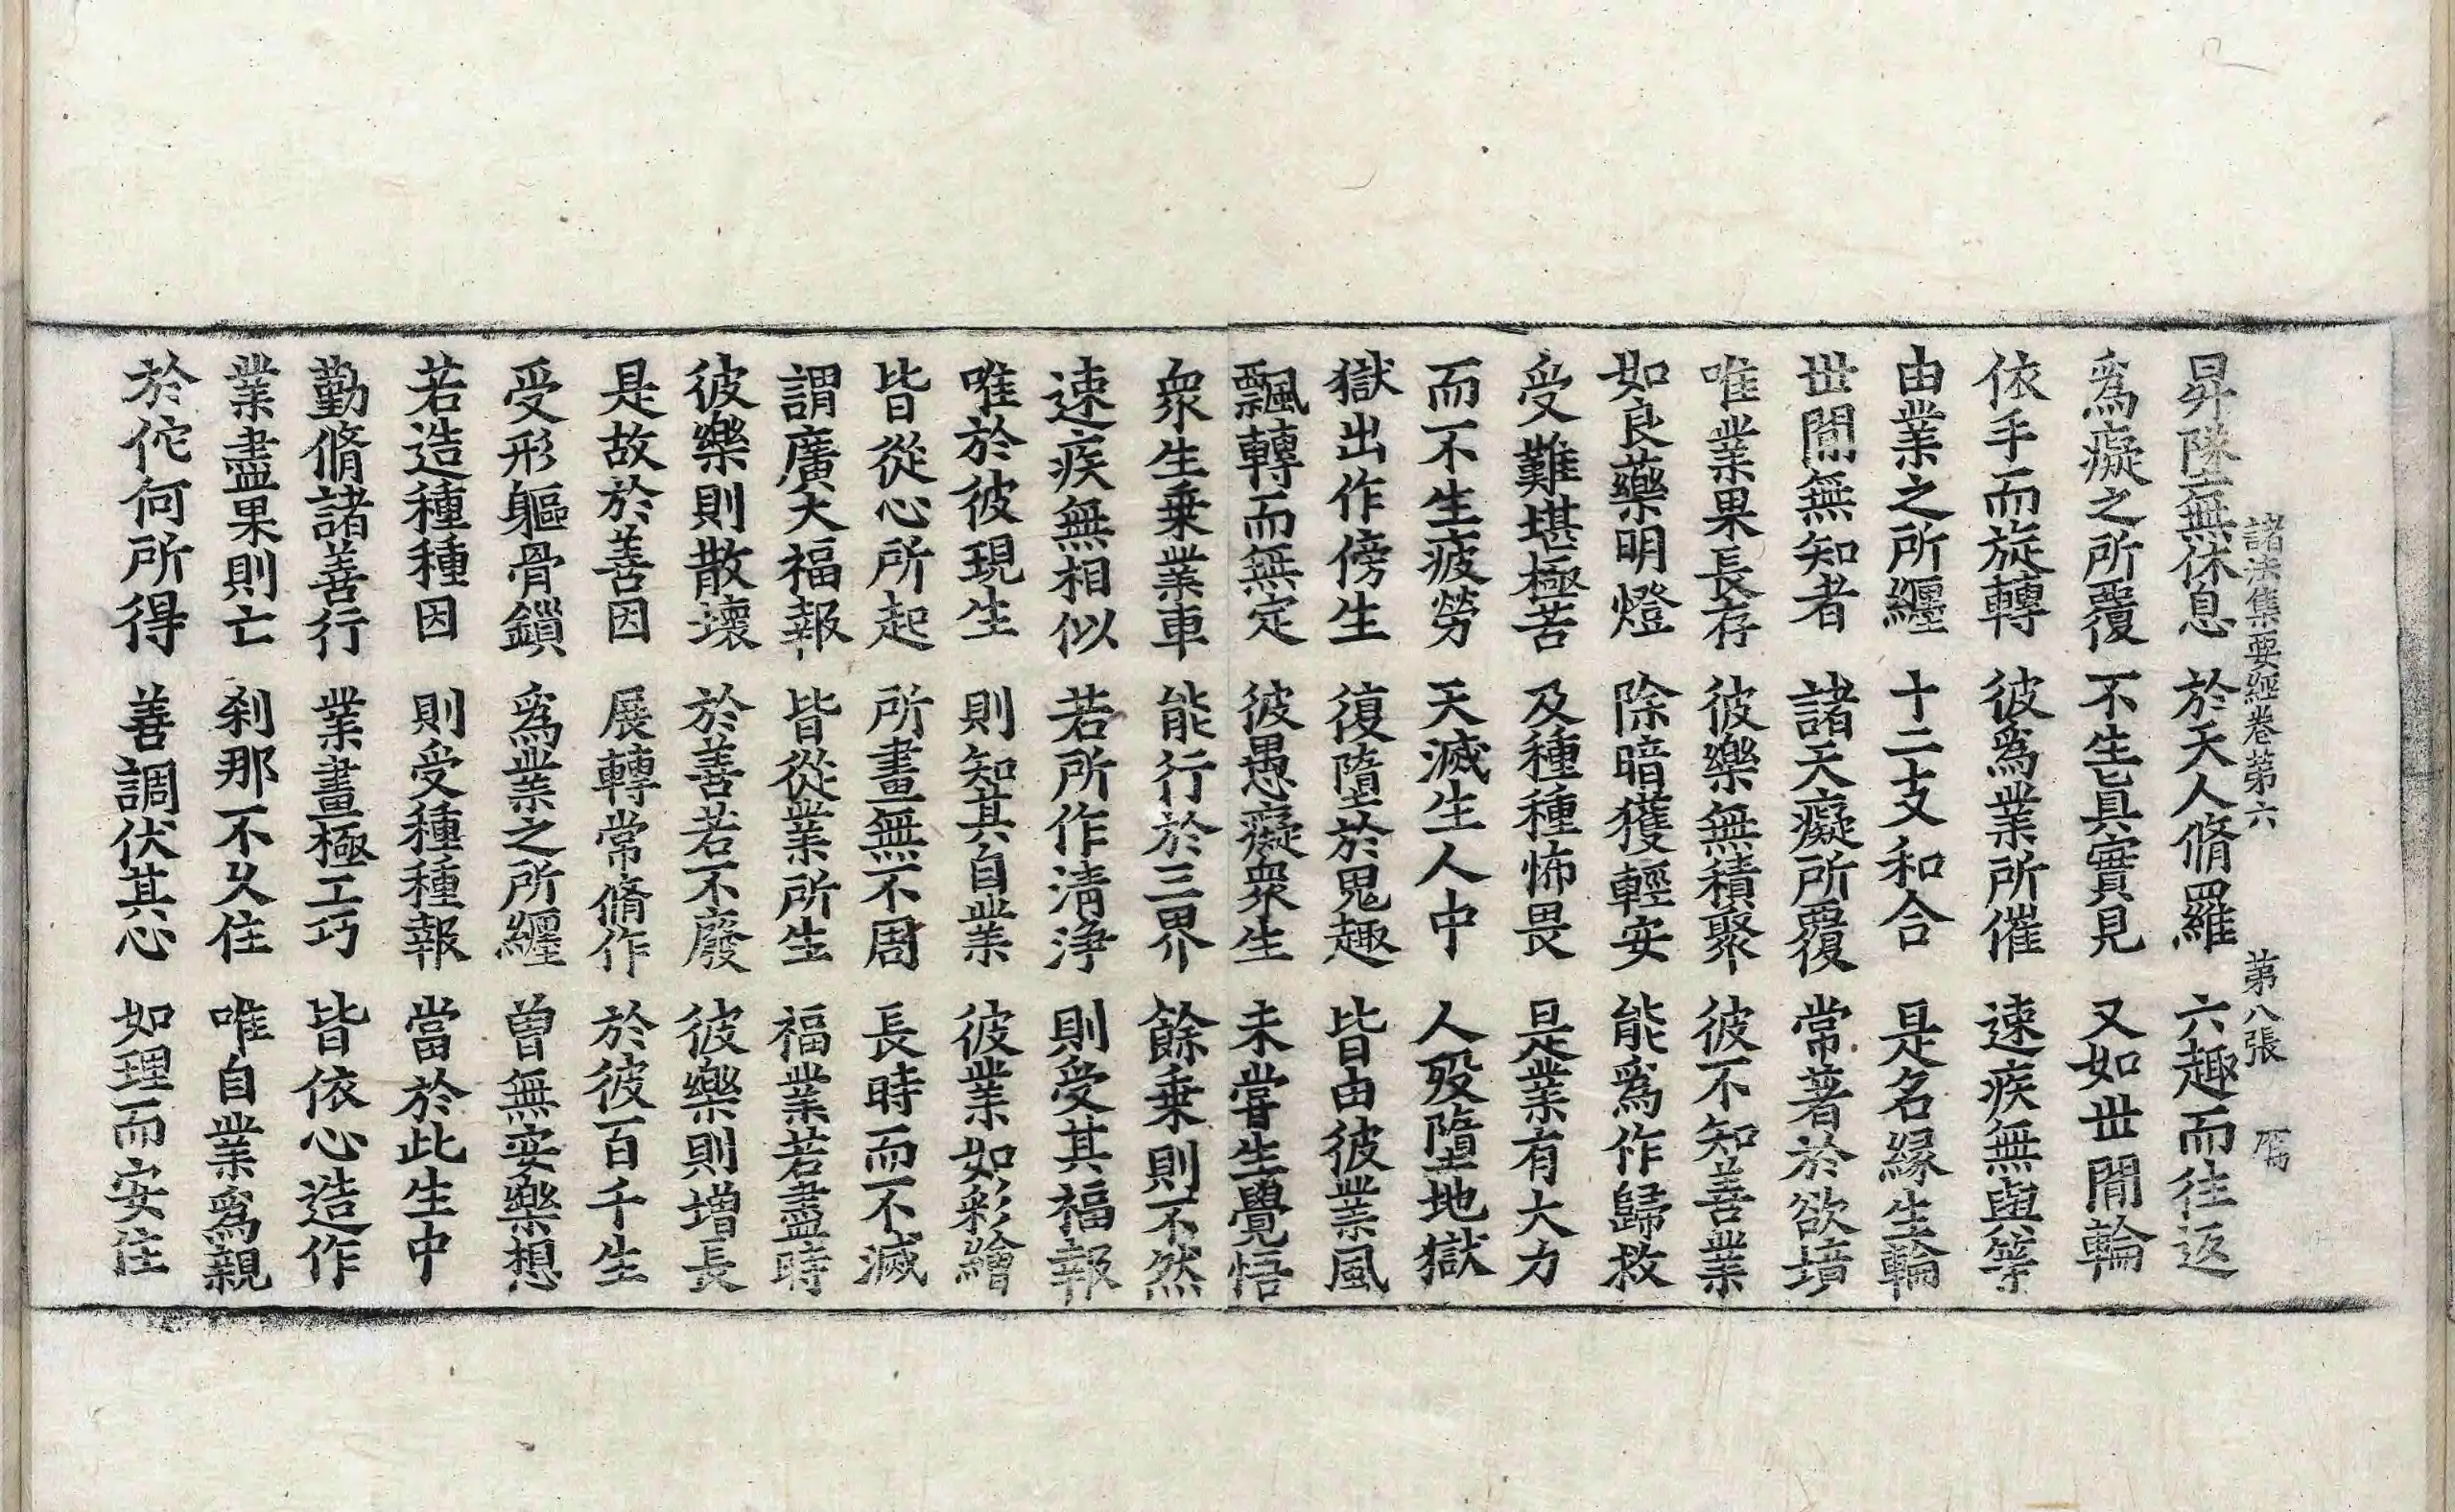 諸法集要經卷第六 第八張 鴈
昇墜無休息 於天人脩羅 六趣而往返
爲癡之所覆 不生真實見 又如世閒輪
依手而旋轉 彼爲業所催 速疾無與等
由業之所纏 十二支和合 是名緣生輪
世閒無知者 諸天癡所覆 常著於欲境
唯業果長存 彼樂無積聚 彼不知善業
如良藥明燈 除暗獲輕安 能爲作歸救
受難堪極苦 及種種怖畏 是業有大力
而不生疲勞 天滅生人中 人歿墮地獄
獄出作傍生 復墮於鬼趣 皆由彼業風
飄轉而無定 彼愚癡衆生 未甞生覺悟
衆生乗業車 能行於三界 餘乗則不然
速疾無相似 若所作清淨 則受其福報
唯於彼現生 則知其自業 彼業如彩繪
皆從心所起 所畫無不周 長時而不滅
謂廣大福報 皆從業所生 福業若盡時
彼樂則散壞 於善若不廢 彼樂則增長
是故於善因 展轉常脩作 於彼百千生
受形軀骨鎖 爲業之所纏 曾無安樂想
若造種種因 則受種種報 當於此生中
勤脩諸善行 業畫極工巧 皆依心造作
業盡果則亡 刹那不久住 唯自業爲親
於佗何所得 善調伏其心 如理而安住